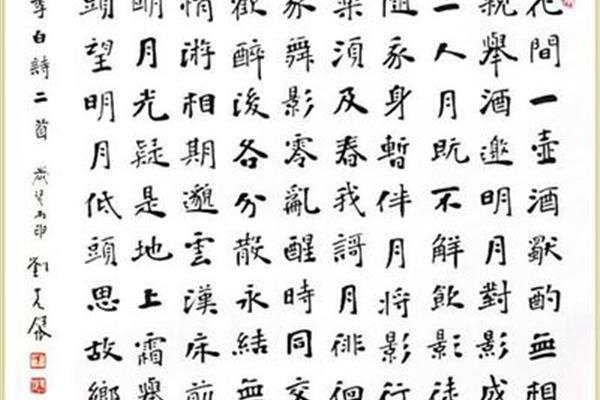 花間一壺酒獨酌無相
親舉酒邀明月對影成
三人月既不解飲影徒
隨我身暫伴月將影行
樂須及春我謌月徘徊
我舞影零亂醒時同交
歡醉後各分散永結無
情游相期邈雲漢床前
明月光疑是地上霜舉
頭望明月低頭思故鄉
李白詩二首 歲 劉